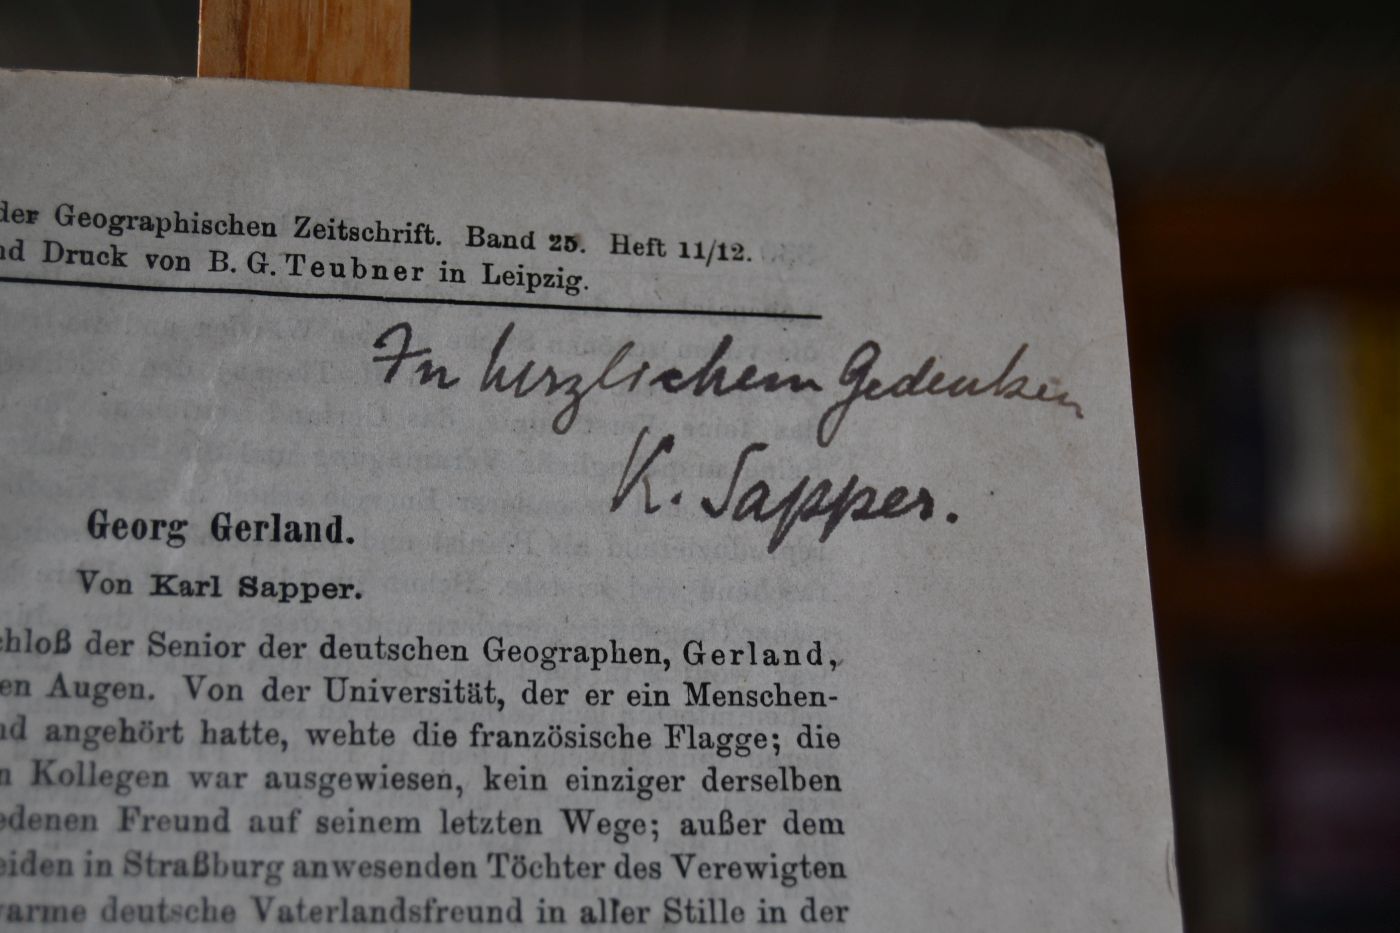 der Geographischen Zeitschrift. Band 25. Heft 11/12.
nd Druck von B. G. Teubner in Leipzig.
In herzlichem Gedenken
K. Sapper.
Georg Gerland.
Von Karl Sapper.
chloß der Senior der deutschen Geographen, Gerland,
en Augen. Von der Universität, der er ein Menschen-
nd angehört hatte, wehte die französische Flagge; die
n Kollegen war ausgewiesen, kein einziger derselben
edenen Freund auf seinem letzten Wege; außer dem
eiden in Straßburg anwesenden Töchter des Verewigten
warme deutsche Vaterlandsfreund in aller Stille in der